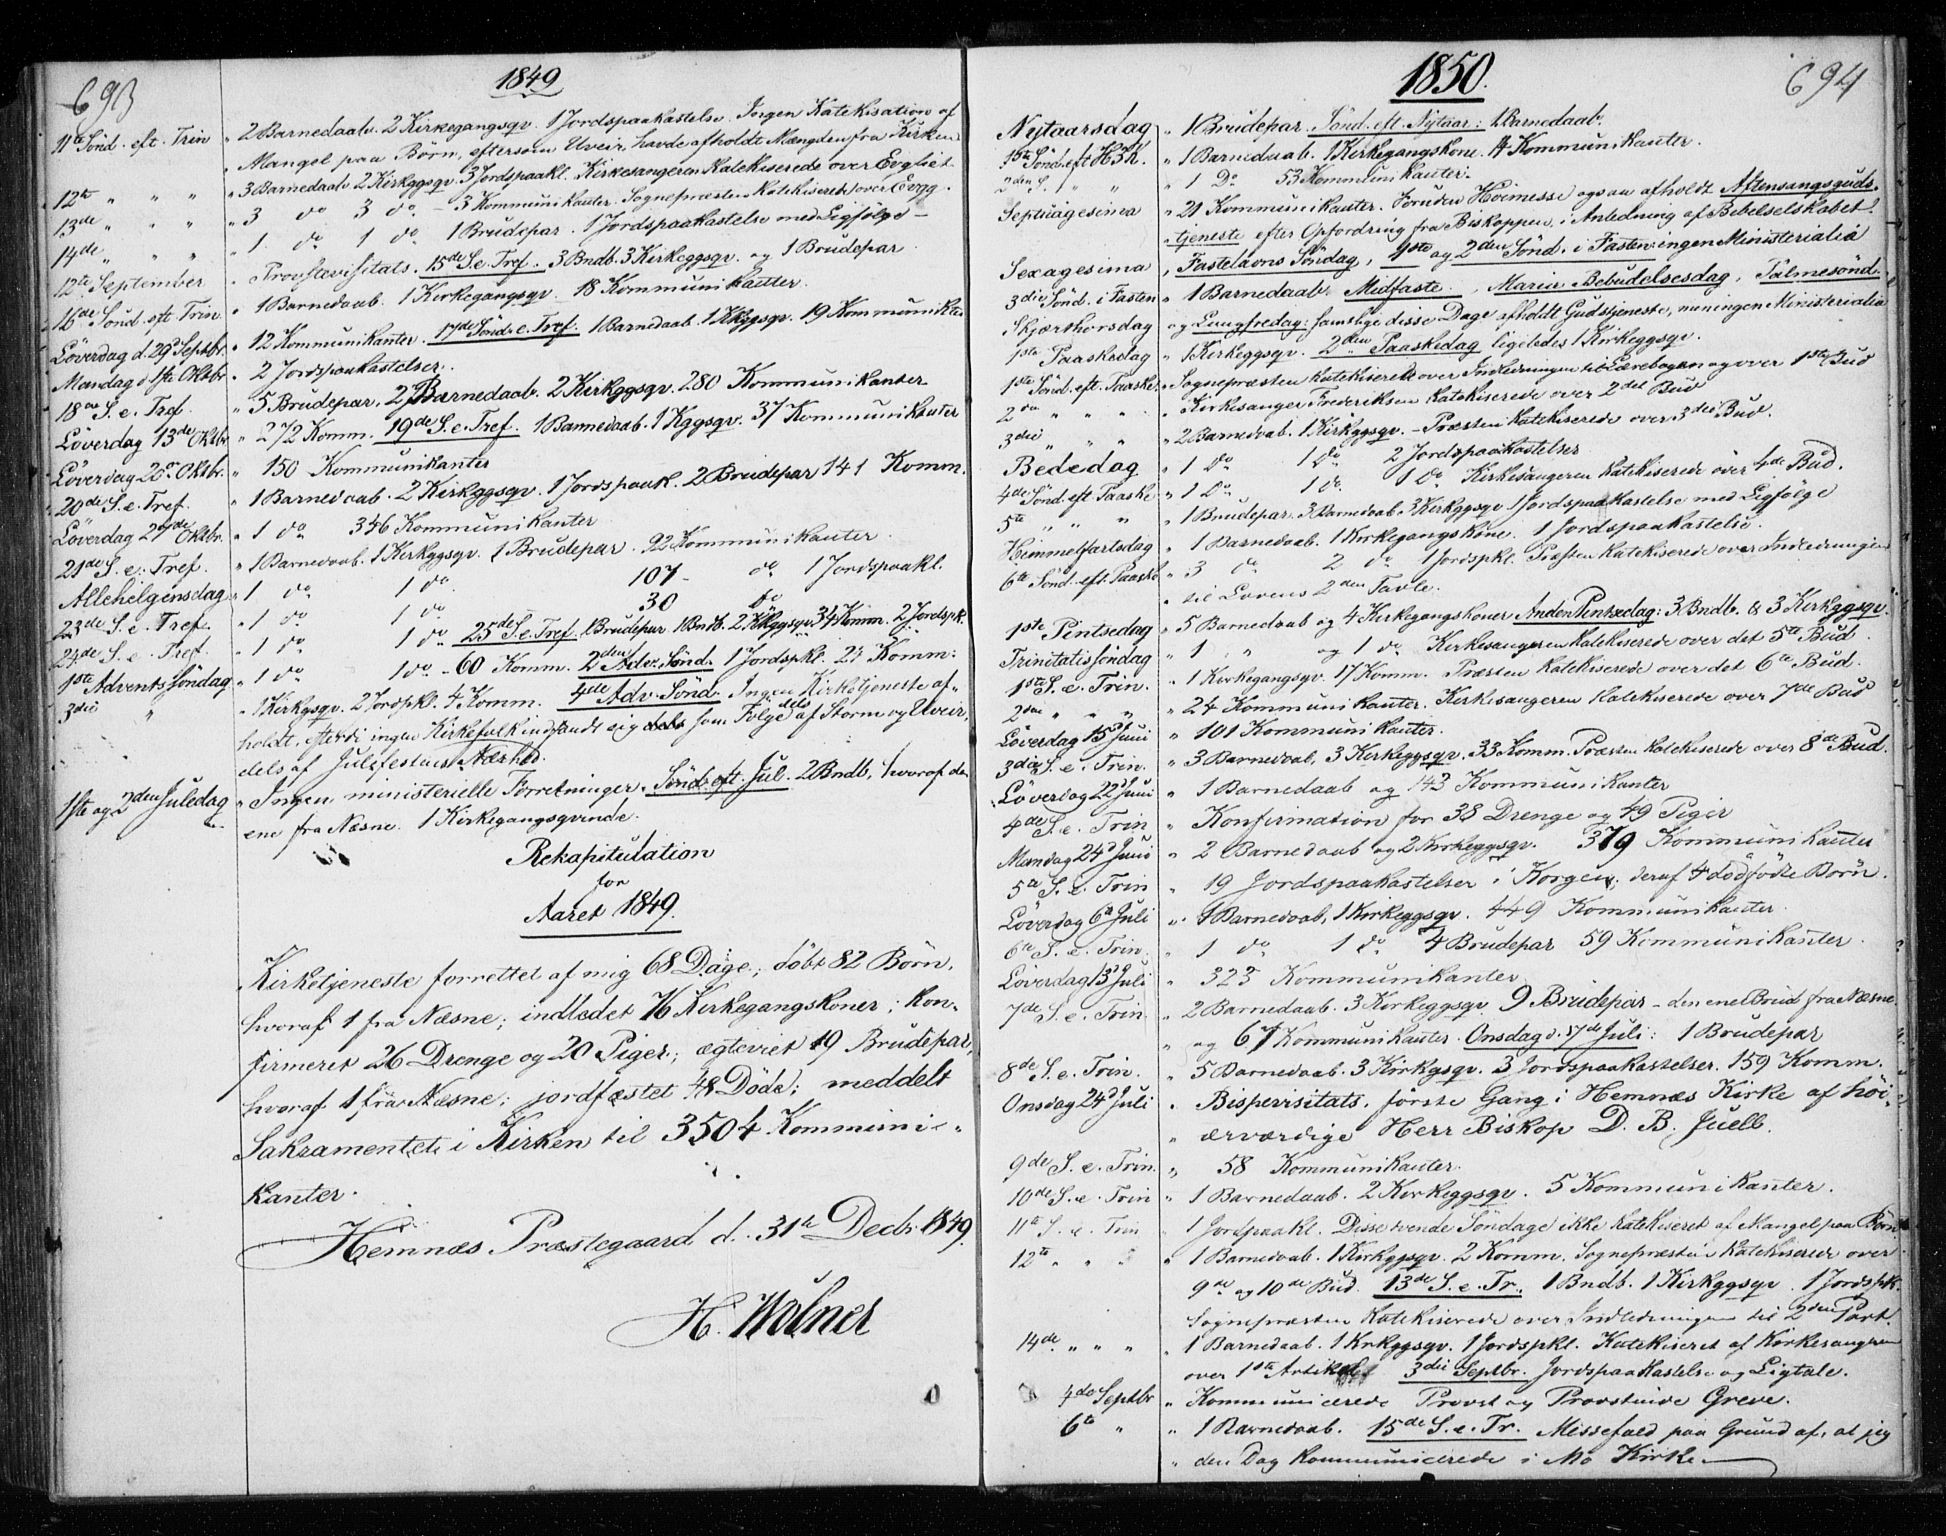 693
1849
11te Sönd. eft. Trin „ 2 Barnedaab. 2 Kirkegangsqv. 1 Jordspaakastelse. Ingen Katekisation af
Mangel paa Börn, eftersom Uveir havde afholdt Mængden fra Kirken
12te „ „ „ „ 3 Barnedaab. 2 Kirkggsqv. 3 Jordspaakl. Kirkesangeren Katekiserede over Evgliet
13de „ „ „ „ 3 do 3 do – 3 Kommunikanter. Sognepræsten Katekiserede over Evgg.
14de „ „ „ „ 1 do 1 do 1 Brudepar. 1 Jordspaakastelse med Ligfölge –
12te September „ Provstevisitats. 15de S. e. Tref. 3 Bndb. 3 Kirkeggsqv. og 1 Brudepar
16de Sönd. eft. Trin „ 1 Barnedaab. 1 Kirkegangsqv. 18 Kommunikanter.
Löverdag d. 29d Septbr. „ 12 Kommunikanter. 17de Sönd. e. Tref. 1 Barnedaab. 1 Kkggsqv. 19 Kommunikter
Mandag d 1ste Oktbr „ 2 Jordspaakastelser.
18de S. e. Tref. „ 5 Brudepar. 2 Barnedaab. 2 Kirkggsqv. 280 Kommunikanter
Löverdag 13de Oktbr „ 272 Komm. 19de S. e. Tref. 1 Barnedaab. 1 Kggsqv. 37 Kommunikanter
Löverdag 20de Oktbr. „ 150 Kommunikanter
20de S. e. Tref. „ 1 Barnedaab. 2 Kirkggsqv. 1 Jordspaak. 2 Brudepar, 141 Komm.
Löverdag 27de Oktbr. „ 1 do 346 Kommunikanter
21de S. e. Tref. „ 1 Barnedaab. 1 Kirkggsqv. 1 Brudepar. 92 Kommunikanter.
Allehelgensdag „ 1 do 1 do 107 – do 1 Jordspaakl.
23de S. e. Tref. „ 1 do 1 do 30 do
24de S. e. Tref. „ 1 do 1 do 25de S. e. Tref. 1 Brudepar 1 Bndb. 2 Kkggsqv. 34 Komm. 2 Jordspk.
1ste Advents Söndag „ 1 do 1 do – 60 Komm. 2den Adv. Sönd. 1 Jordspkl. 27 Komm.
3die „ „ 1 Kirkgsqv. 2 Jordspkl. 4 Komm. 4de Adv. Sönd. Ingen Kirketjeneste af-
holdt, efterdi ingen Kirkefolk indfandt sig dels som Fölge dels af Storm og Uveir,
dels af Julefestens Nærhed.
1ste og 2den Juledag „ Ingen ministerielle Forretninger. Sönd. eft. Jul. 2 Bndb, hvoraf den
ene fra Næsne. 1 Kirkegangsqvinde.
Rekapitulation
for
Aaret 1849.
Kirketjeneste forrettet af mig 68 Dage; döbt 82 Börn,
hvoraf 1 fra Næsne; indledet 76 Kirkegangskoner; kon-
firmeret 26 Drenge og 20 Piger; egteviet 19 Brudepar,
hvoraf 1 fra Næsne; jordfæstet 48 Döde; meddelt
Sakramentet i Kirken til 3504 Kommuni-
kanter.
Hemnæs Præstegaard d. 31te Decbr 1849.
H. Wolner
694
1850.
Nytaarsdag „ 1 Brudepar. Sönd. eft. Nytaar: 1 Barnedaab.
1ste Sönd. eft H3K. „ 1 Barnedaab. 1 Kirkegangskone. 4 Kommunikanter.
2den S. „ „ „ 1 Do 53 Kommunikanter.
Septuagesima „ 21 Kommunikanter. Foruden Hoimesse ogsaa afholdt Aftensangsguds-
tjeneste efter Opfordring fra Biskoppen, i Anledning af Bebelselskabet.
Sexagesima „ Fastelavns Söndag, 1ste og 2den Sönd. i Fasten ingen Ministerialia
3die Sönd. i Fasten „ 1 Barnedaab. Midfaste. Mariæ Bebudelsesdag, Palmesönd.
Skjærthorsdag og Langfredag: samtlige disse Dage afholdt Gudstjeneste, men ingen Ministerialia
1ste Paaskedag „ 1 Kirkeggsqv. 2den Paaskedag ligeledes 1 Kirkeggsqv.
1ste Sönd. eft. Paaske. „ Sognepræsten katekiserede over Indledningen til Lærebogen og over 1ste Bud
2den „ „ „ „ Kirkesanger Frederiksen katekiserede over 2det Bud
3die „ „ „ „ 2 Barnedaab. 1 Kirkggsqv. – Præsten katekiserede over 3die Bud.
Bededag „ 1 Do 1 Do 2 Jordspaakastelser
4de Sönd. eft. Paaske „ 1 Do 1 do 1 Do Kirkesangeren katekiserede over 4de Bud.
5te „ „ „ „ 1 Brudepar. 3 Barnedaab. 3 Kirkggsqv 1 Jordspaakastelse med Ligfölge
Himmelfartsdag „ 1 Barnedaab. 1 Kirkegangskone. 1 Jordspaakastelse.
6te Sönd. eft. Paaske „ 3 do 2 do 1 Jordspkl. Præsten katekiserede over Indledningen
„ til Lovens 2den Tavle.
1ste Pintsedag „ 5 Barnedaab og 4 Kirkegangskoner Anden Pintsedag: 3 Bndb. & 3 Kirkggsqv.
Trinitatis Söndag „ 1 „ og 1 do Kirkesangeren katekiserede over det 5te Bud.
1ste S. e. Trin. „ 1 Kirkegangsqv. 17 Komm. Præsten katekiserede over det 6te Bud.
2den „ „ „ „ 24 Kommunikanter. Kirkesangeren katekiserede over 7de Bud
Löverdag 15d Juni „ 101 Kommunikanter.
3die S. e. Trin. „ 3 Barnedaab, 3 Kirkeggsqv. 33 Komm. Præsten katekiserede over 8de Bud.
Löverdag 22d Juni „ 1 Barnedaab og 143 Kommunikanter
4de S. e. Trin „ Konfirmation for 38 Drenge og 49 Piger
Mandag 24d Juni „ 2 Barnedaab og 2 Kirkeggsqv. 379 Kommunikanter
5te S. e. Trin „ 19 Jordspaakastelser i Korgen; deraf 4 dödfödte Börn.
Löverdag 6te Juli „ 1 Barnedaab, 1 Kirkeggsqv. 449 Kommunikanter.
6te S. e. Trin. „ 1 do 1 do 4 Brudepar 59 Kommunikanter.
Löverdag 13d Juli „ 323 Kommunikanter.
7de S. e. Trin „ 2 Barnedaab. 3 Kirkeggsqv. 9 Brudepar – den ene Brud fra Næsne
„ og 67 Kommunikanter. Onsdag d. 17de Juli: 1 Brudepar
8de S. e. Trin. „ 5 Barnedaab. 3 Kirkgsqv. 3 Jordspaakastelser. 159 Komm.
Onsdag 24d Juli „ Bispevisitats, förste Gang i Hemnæs Kirke af höi-
„ ærværdige Herr Biskop D. B. Juell.
9de S. e. Trin. „ 58 Kommunikanter.
10de S. e. Trin „ 1 Barnedaab. 2 Kirkeggsqv. 5 Kommunikanter.
11te S. e. Trin „ 1 Jordpaakl. Disse tvende Söndage ikke katekiseret af Mangel paa Börn
12te „ „ „ „ 1 Barnedaab. 1 Kirkggsqv. 2 Komm. Sognepræsten katekiserede over
9de og 10de Bud. 13de S. e. Tr. 1 Bndb. 1 Kirkggsqv. 1 Jordspk.
Sognepræsten katekiserede over Indledningen til 2den Part.
14de „ „ „ „ 1 Barnedaab. 1 Krkggsqv. 1 Jordspkl. Katekiseret af Kirkesangeren
over 1ste Artikel 3die Septbr. Jordspaakastelse og Ligtale.
4de Septbr „ Kommunicerede Provst og Provstinde Greve.
6te „ „ 1 Barnedaab. 15de S. e. Tr. Messefald paa Grund af, at jeg
„ den Dag kommunicerede i Mo Kirke